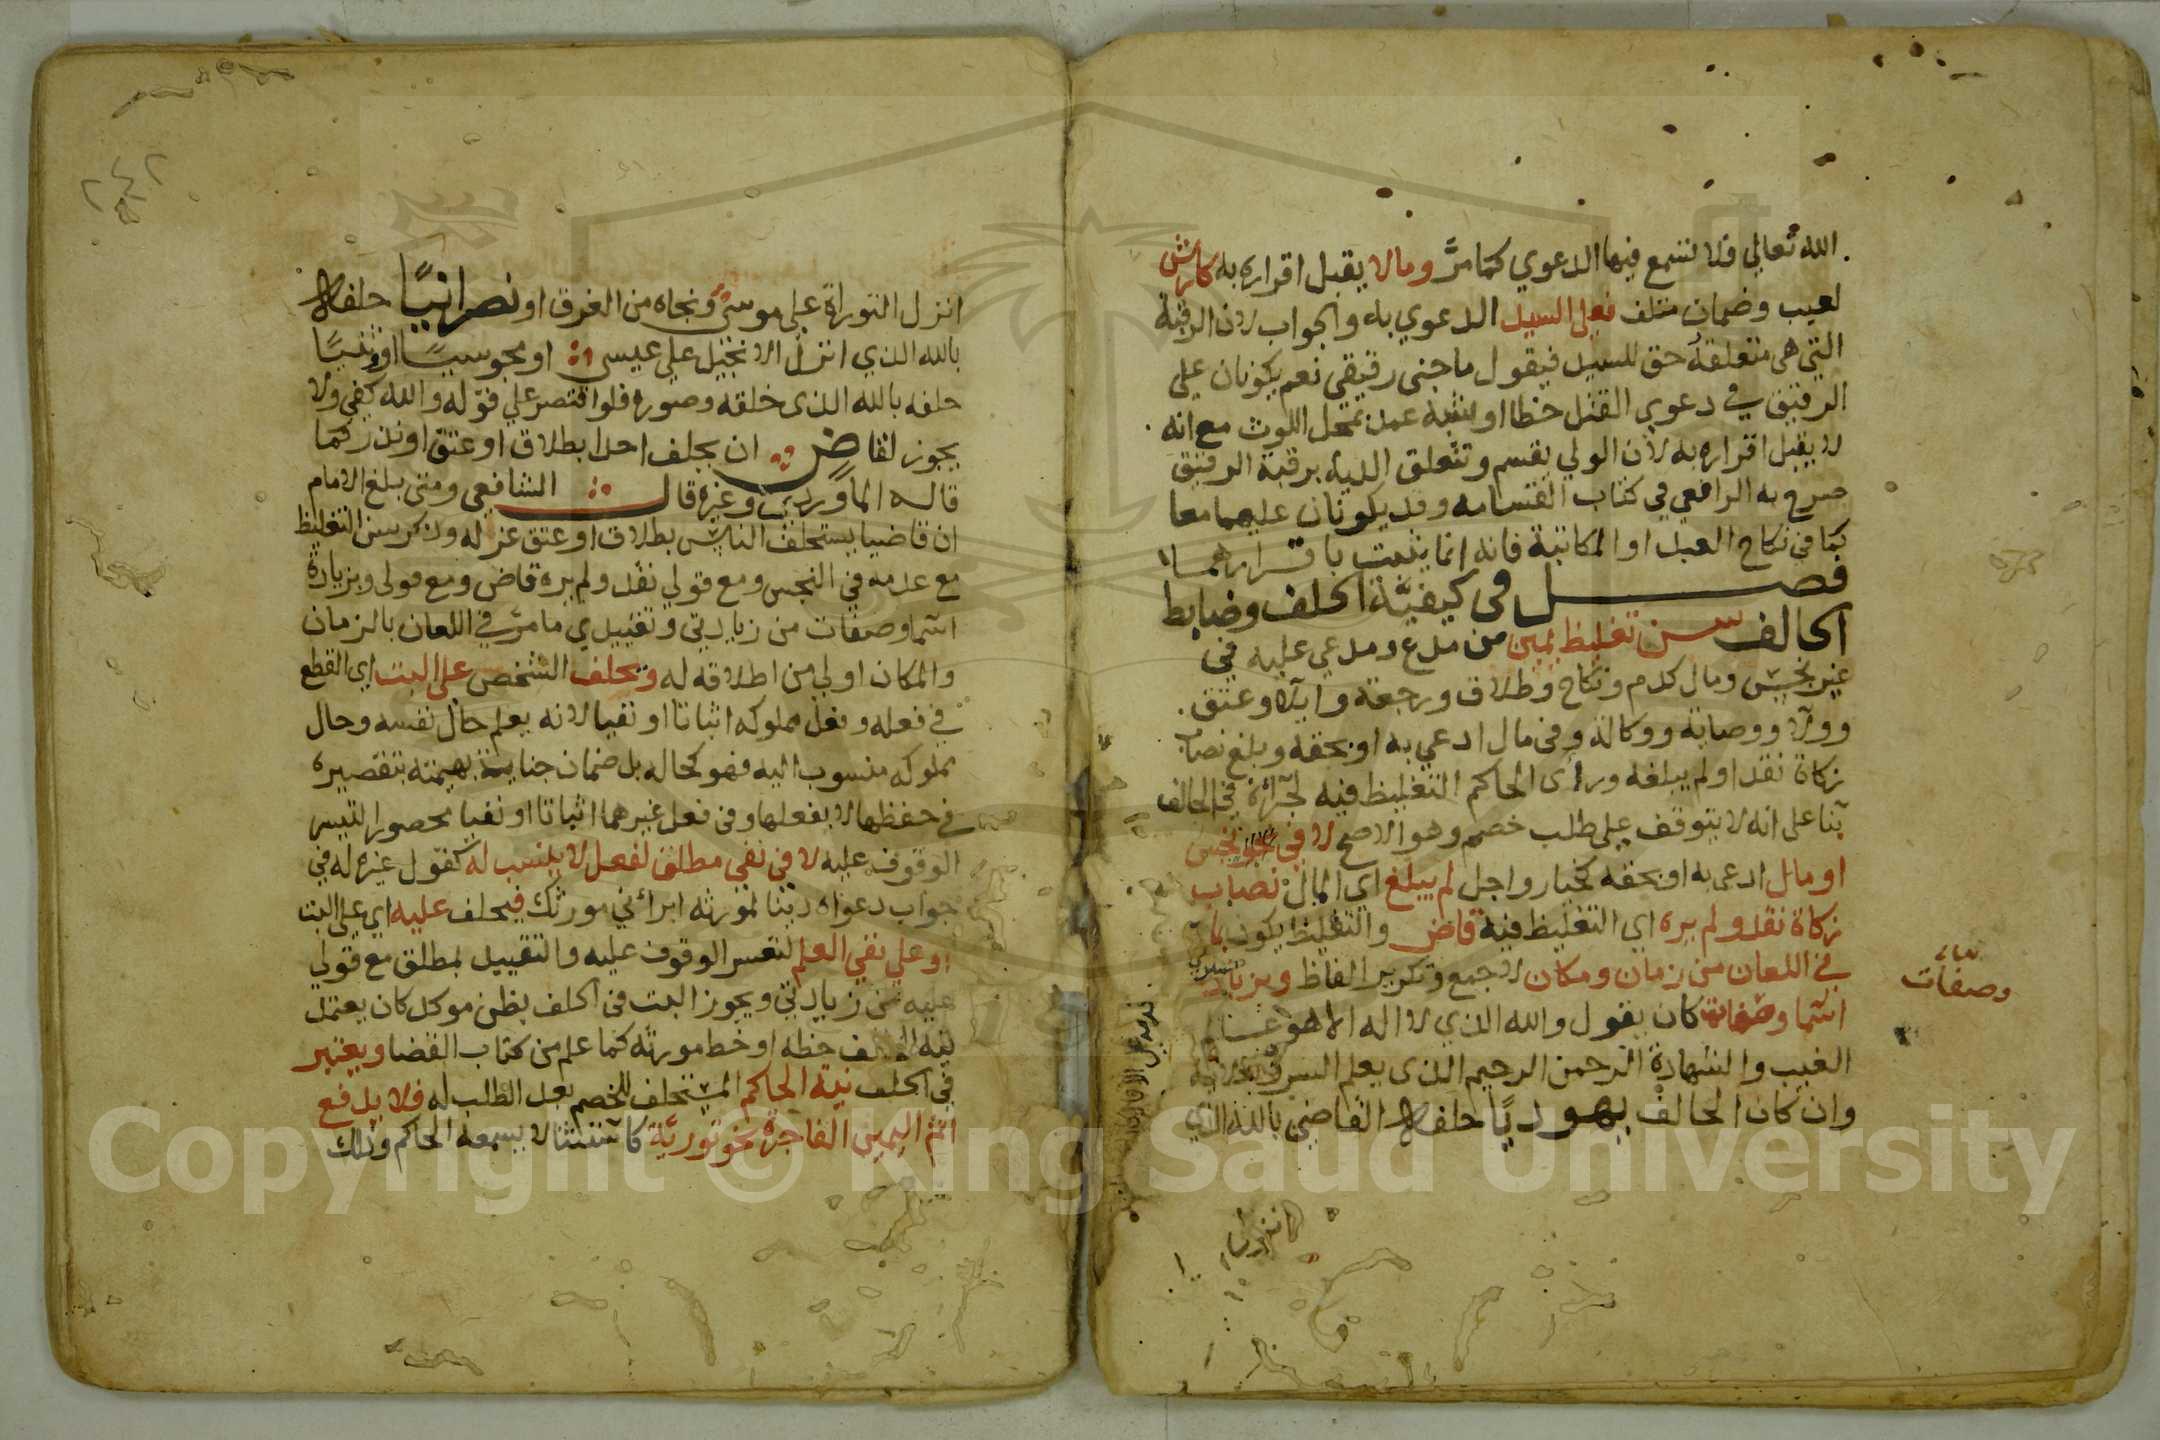 الله تعالي فلا تسمع فيها الدعوي كما مرّ وما لا يقبل اقراره به كارش
لعيب وضمان متلف فعلى السيد الدعوي به والجواب لان الرقبة
التي هي متعلقة حق للسيد فيقول ما جنى رقيقي نعم يكونان علي
الرقيق في دعوي القتل خطا او شبه عمد بمحل اللوث مع انه
لا يقبل اقراره به لان الولي يقسم وتتعلق الدية برقبة الرقيق
صرح به الرافعي في كتاب القسامه وقد يكونان عليهما معا
كما في نكاح العبد او المكاتبة فانه انما يثبت باقرارهما
فصل في كيفيّة الحلف وضابط
الحالف سن تغليظ يمين من مدع ومدعي عليه في
غير نجس ومال كدم ونكاح وطلاق ورجعة وايلا وعتق
وولا ووصاية ووكالة وفي مال ادعي به او بحقه وبلغ نصاب
زكاة نقد او لم يبلغه وراى الحاكم التغليظ فيه لجرأة في الحالف
بنا على انه لا يتوقف علي طلب خصم وهو الاصح لا في نجس
او مال ادعى به او بحقه كخيار واجل لم يبلغ اي المال نصاب
زكاة نقد ولم يره اي التغليظ فيه قاض والتغليظ يكون بما
في اللعان من زمان ومكان لا جمع وتكرير الفاظ وبزيادة
اسما وصفات كان يقول والله الذي لا اله الا هو عالم
الغيب والشهادة الرحمن الرحيم الذي يعلم السر والعلانية
وان كان الحالف يهوديًا حلفه القاضي بالله الذي
وصفات
انزل
انزل التوراة على موسى ونجاه من الغرق او نصرانيًا حلفه
بالله الذي انزل الانجيل علي عيسى او مجوسيًا او وثنيًا
حلفه بالله الذى خلقه وصوره فلو اقتصر علي قوله والله كفي ولا
يجوز لقاضٍ ان يحلف احدا بطلاق او عتق او نذر كما
قاله الماوردي وغيره قال الشافعي ومتى بلغ الامام
ان قاضيا يستحلف الناس بطلاق او عتق عزله وذكر سن التغليظ
مع عدمه في النجس ومع قولي نقد ولم يره قاض ومع قولي وبزيادة
اسما وصفات من زيادتي وتقييدي ما مر في اللعان بالزمان
والمكان اولي من اطلاقه له ويحلف الشخص على البت اي القطع
في فعله وفعل مملوكه اثباتا او نفيا لانه يعلم حال نفسه وحال
مملوكه منسوب اليه فهو كحاله بل ضمان جناية بهيمته بتقصيره
في حفظها لا بفعلها وفي فعل غيرهما اثباتا او نفيا محصورا لتيسر
الوقوف عليه لا في نفي مطلق لفعل لا ينسب له كقول غيره له في
جواب دعواه دينا لمورثه ابرأني مورثك فيحلف عليه اي على البت
او علي نفي العلم لتعسر الوقوف عليه والتقييد بمطلق مع قولي
عليه من زيادتي ويجوز البت في الحلف بظن موكد كان يعتمد
فيه الحالف خطه او خط مورثه كما علم من كتاب القضا ويعتبر
في الحلف نية الحاكم المستحلف للخصم بعد الطلب له فلا يدفع
اثم اليمين الفاجرة نحو تورية كاستثنا لا يسمعه الحاكم وذلك